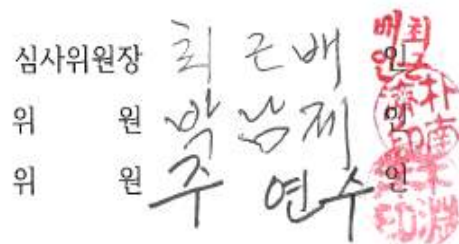 심사위원장 최 근 배 인
위 원 박 남 제 인
위 원 주 연 수 인